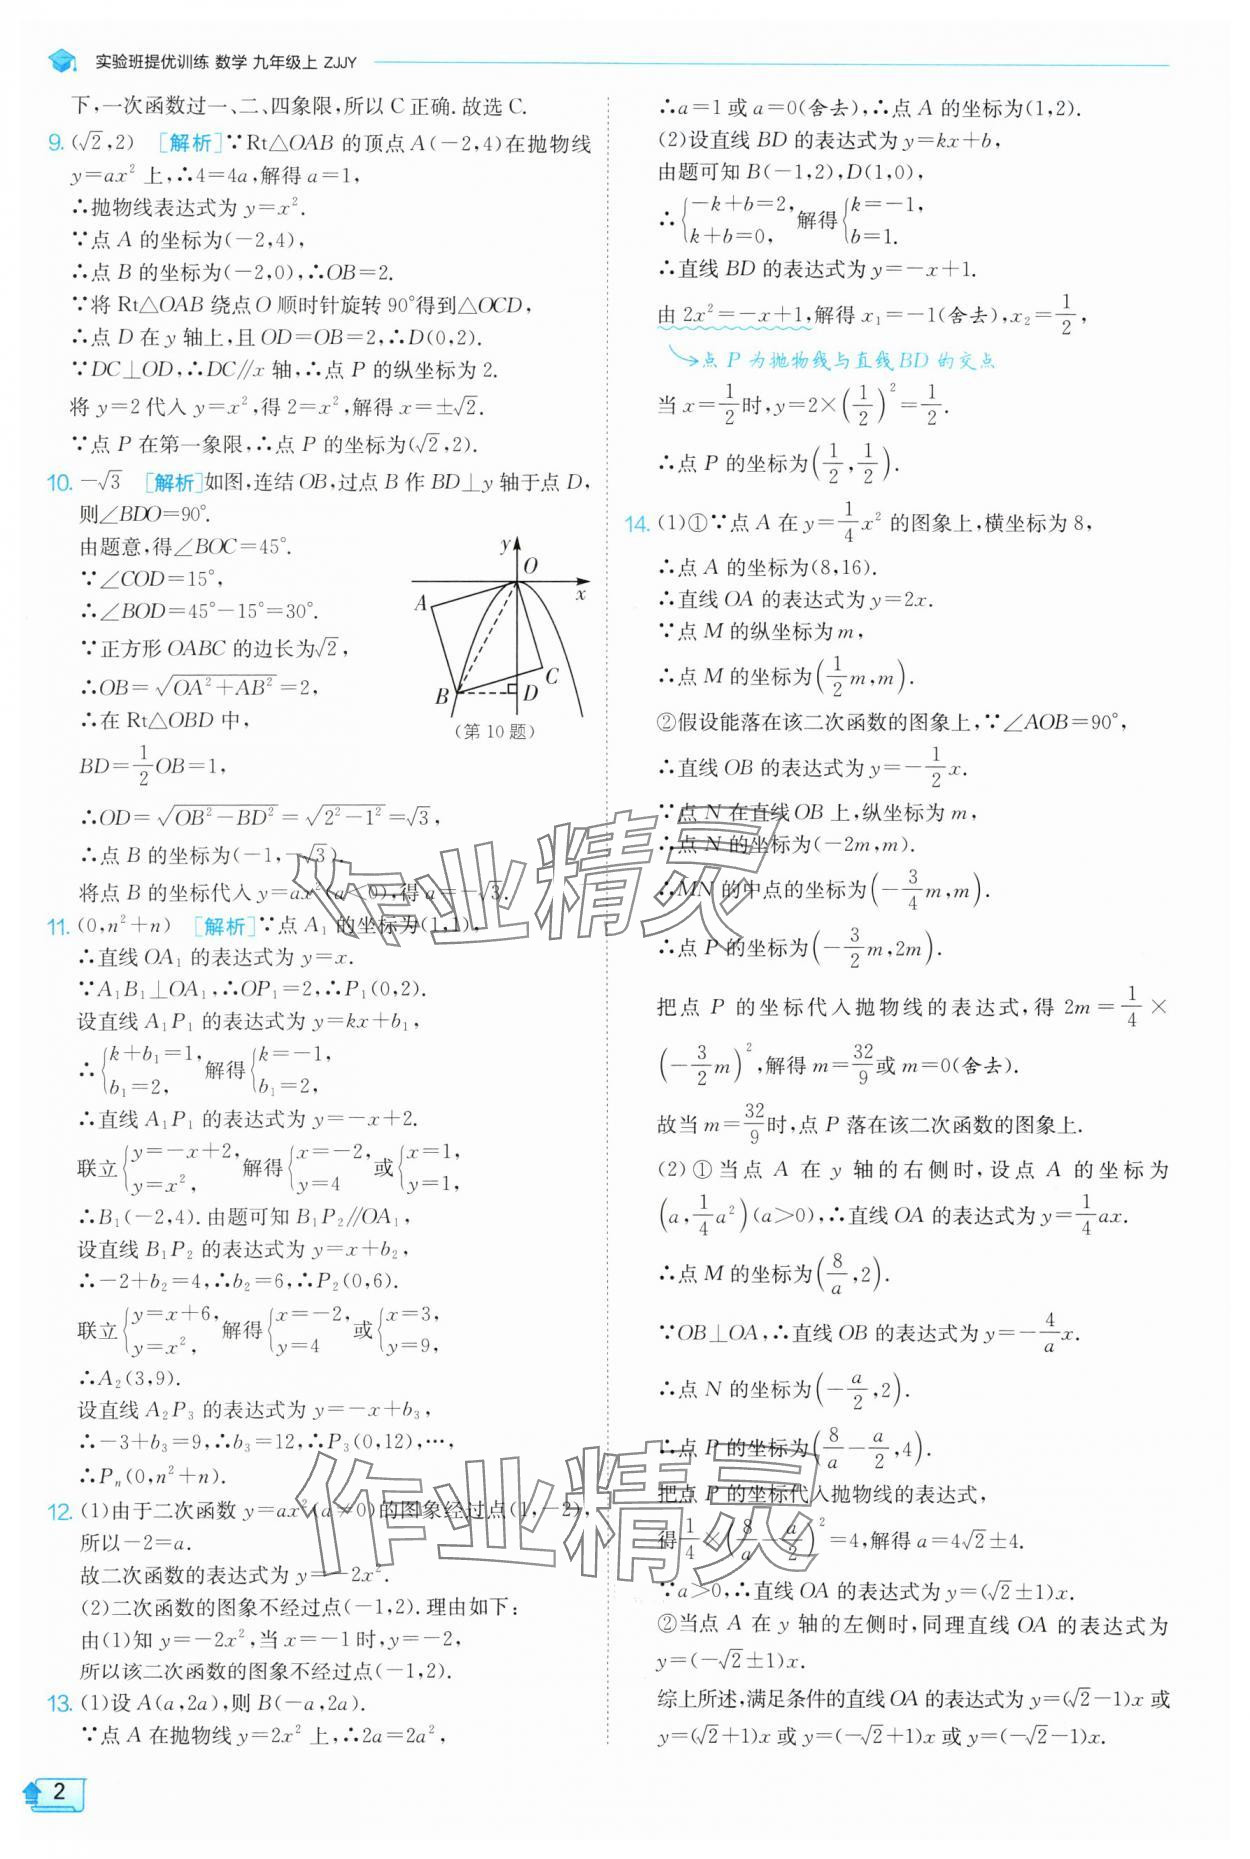 实验班提优训练 数学 九年级上 ZJJY
下,一次函数过一、二、四象限,所以 C 正确.故选 C.
9. (√2,2) [解析]∵Rt△OAB 的顶点 A(-2,4)在抛物线
y=ax² 上,∴4=4a,解得 a=1,
∴抛物线表达式为 y=x².
∵点 A 的坐标为(-2,4),
∴点 B 的坐标为(-2,0),∴OB=2.
∵将 Rt△OAB 绕点 O 顺时针旋转 90°得到△OCD,
∴点 D 在 y 轴上,且 OD=OB=2,∴D(0,2).
∵DC⊥OD,∴DC∥x 轴,∴点 P 的纵坐标为 2.
将 y=2 代入 y=x²,得 2=x²,解得 x=±√2.
∵点 P 在第一象限,∴点 P 的坐标为(√2,2).
10. -√3 [解析]如图,连结 OB,过点 B 作 BD⊥y 轴于点 D,
则∠BDO=90°.
由题意,得∠BOC=45°.
∵∠COD=15°,
∴∠BOD=45°-15°=30°.
∵正方形 OABC 的边长为√2,
∴OB=√(OA²+AB²)=2,
∴在 Rt△OBD 中,
BD=1/2 OB=1,
y
O
x
A
C
B
D
(第 10 题)
∴OD=√(OB²-BD²)=√(2²-1²)=√3,
∴点 B 的坐标为(-1,-√3).
将点 B 的坐标代入 y=ax²(a<0),得 a=-√3.
11. (0,n²+n) [解析]∵点 A₁ 的坐标为(1,1),
∴直线 OA₁ 的表达式为 y=x.
∵A₁B₁⊥OA₁,∴OP₁=2,∴P₁(0,2).
设直线 A₁P₁ 的表达式为 y=kx+b₁,
∴{k+b₁=1, b₁=2, 解得{k=-1, b₁=2,
∴直线 A₁P₁ 的表达式为 y=-x+2.
联立{y=-x+2, y=x², 解得{x=-2, y=4 或{x=1, y=1,
∴B₁(-2,4).由题可知 B₁P₂∥OA₁,
设直线 B₁P₂ 的表达式为 y=x+b₂,
∴-2+b₂=4,∴b₂=6,∴P₂(0,6).
联立{y=x+6, y=x², 解得{x=-2, y=4 或{x=3, y=9,
∴A₂(3,9).
设直线 A₂P₃ 的表达式为 y=-x+b₃,
∴-3+b₃=9,∴b₃=12,∴P₃(0,12),…,
∴Pₙ(0,n²+n).
12. (1)由于二次函数 y=ax²(a≠0)的图象经过点(1,-2),
所以-2=a.
故二次函数的表达式为 y=-2x².
(2)二次函数的图象不经过点(-1,2).理由如下:
由(1)知 y=-2x²,当 x=-1 时,y=-2,
所以该二次函数的图象不经过点(-1,2).
13. (1)设 A(a,2a),则 B(-a,2a).
∵点 A 在抛物线 y=2x² 上,∴2a=2a²,
∴a=1 或 a=0(舍去),∴点 A 的坐标为(1,2).
(2)设直线 BD 的表达式为 y=kx+b,
由题可知 B(-1,2),D(1,0),
∴{-k+b=2, k+b=0, 解得{k=-1, b=1.
∴直线 BD 的表达式为 y=-x+1.
由 2x²=-x+1,解得 x₁=-1(舍去),x₂=1/2,
点 P 为抛物线与直线 BD 的交点
当 x=1/2 时,y=2×(1/2)²=1/2.
∴点 P 的坐标为(1/2,1/2).
14. (1)①∵点 A 在 y=1/4 x² 的图象上,横坐标为 8,
∴点 A 的坐标为(8,16).
∴直线 OA 的表达式为 y=2x.
∵点 M 的纵坐标为 m,
∴点 M 的坐标为(1/2 m,m).
②假设能落在该二次函数的图象上,∵∠AOB=90°,
∴直线 OB 的表达式为 y=-1/2 x.
∵点 N 在直线 OB 上,纵坐标为 m,
∴点 N 的坐标为(-2m,m).
∴MN 的中点的坐标为(-3/4 m,m).
∴点 P 的坐标为(-3/2 m,2m).
把点 P 的坐标代入抛物线的表达式,得 2m=1/4×
(-3/2 m)²,解得 m=32/9 或 m=0(舍去).
故当 m=32/9 时,点 P 落在该二次函数的图象上.
(2)①当点 A 在 y 轴的右侧时,设点 A 的坐标为
(a,1/4 a²)(a>0),∴直线 OA 的表达式为 y=1/4 ax.
∴点 M 的坐标为(8/a,2).
∵OB⊥OA,∴直线 OB 的表达式为 y=-4/a x.
∴点 N 的坐标为(-a/2,2).
∴点 P 的坐标为(8/a-a/2,4).
把点 P 的坐标代入抛物线的表达式,
得 1/4×(8/a-a/2)²=4,解得 a=4√2±4.
∵a>0,∴直线 OA 的表达式为 y=(√2±1)x.
②当点 A 在 y 轴的左侧时,同理直线 OA 的表达式为
y=(-√2±1)x.
综上所述,满足条件的直线 OA 的表达式为 y=(√2-1)x 或
y=(√2+1)x 或 y=(-√2+1)x 或 y=(-√2-1)x.
作业精灵
作业精灵
2